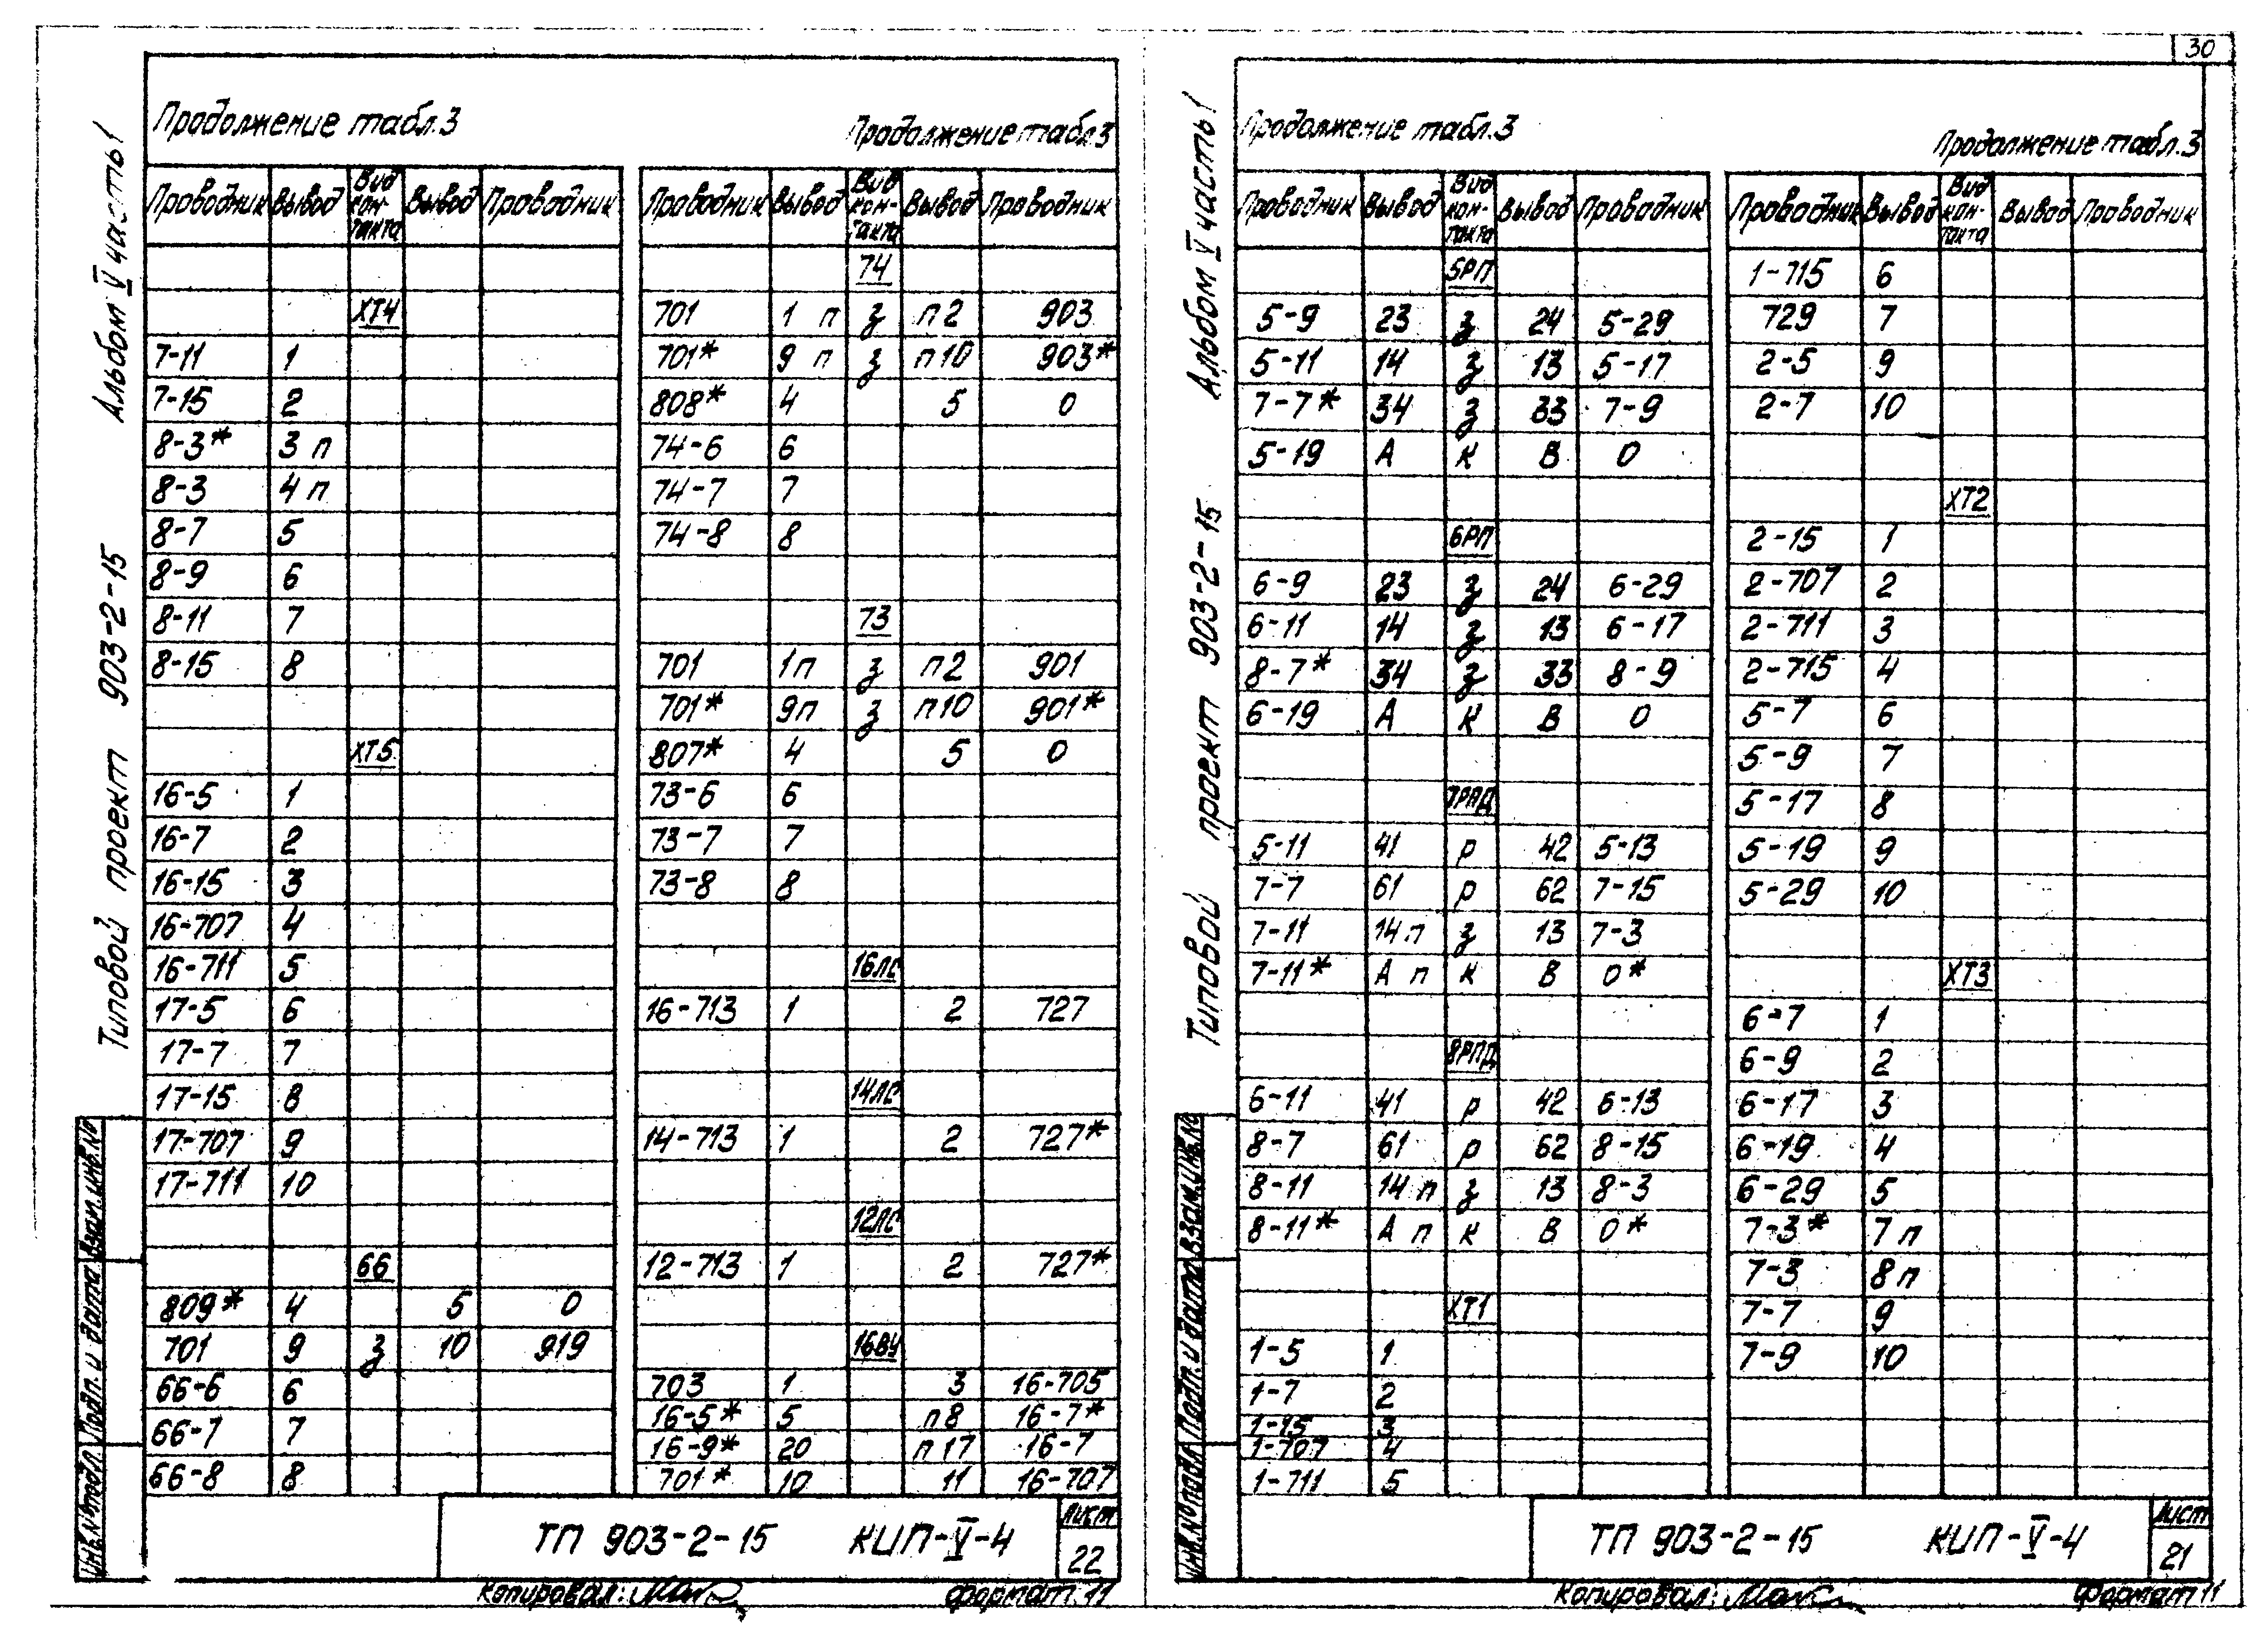 30
Альбом V часть 1
Типовой проект 903-2-15
Продолжение табл.3
Проводник Вывод Вид кон-такта Вывод Проводник
ХТ4
7-11 1
7-15 2
8-3* 3 п
8-3 4 п
8-7 5
8-9 6
8-11 7
8-15 8
ХТ5
16-5 1
16-7 2
16-15 3
16-707 4
16-711 5
17-5 6
17-7 7
17-15 8
17-707 9
17-711 10
66
809* 4 5 0
701 9 з 10 919
66-6 6
66-7 7
66-8 8
Продолжение табл.3
Проводник Вывод Вид кон-такта Вывод Проводник
74
701 1 п з п2 903
701* 9 п з п10 903*
808* 4 5 0
74-6 6
74-7 7
74-8 8
73
701 1п з п2 901
701* 9п з п10 901*
807* 4 5 0
73-6 6
73-7 7
73-8 8
16ЛС
16-713 1 2 727
14ЛС
14-713 1 2 727*
12ЛС
12-713 1 2 727*
16ВУ
703 1 3 16-705
16-5* 5 п8 16-7*
16-9* 20 п17 16-7
701* 10 11 16-707
Инв.№подл. Подп. и дата Взам.инв.№
ТП 903-2-15 КИП-V-4
Лист
22
Копировал:
Формат 11
Альбом V часть 1
Типовой проект 903-2-15
Продолжение табл.3
Проводник Вывод Вид кон-такта Вывод Проводник
5РП
5-9 23 з 24 5-29
5-11 14 з 13 5-17
7-7* 34 з 33 7-9
5-19 А К В 0
6РП
6-9 23 з 24 6-29
6-11 14 з 13 6-17
8-7* 34 з 33 8-9
6-19 А К В 0
7РПД
5-11 41 р 42 5-13
7-7 61 р 62 7-15
7-11 14 п з 13 7-3
7-11* А п К В 0*
8РПД
6-11 41 р 42 6-13
8-7 61 р 62 8-15
8-11 14 п з 13 8-3
8-11* А п К В 0*
ХТ1
1-5 1
1-7 2
1-15 3
1-707 4
1-711 5
Продолжение табл.3
Проводник Вывод Вид кон-такта Вывод Проводник
1-715 6
729 7
2-5 9
2-7 10
ХТ2
2-15 1
2-707 2
2-711 3
2-715 4
5-7 6
5-9 7
5-17 8
5-19 9
5-29 10
ХТ3
6-7 1
6-9 2
6-17 3
6-19 4
6-29 5
7-3* 7 п
7-3 8 п
7-7 9
7-9 10
Инв.№подл. Подп. и дата Взам.инв.№
ТП 903-2-15 КИП-V-4
Лист
21
Копировал:
Формат 11